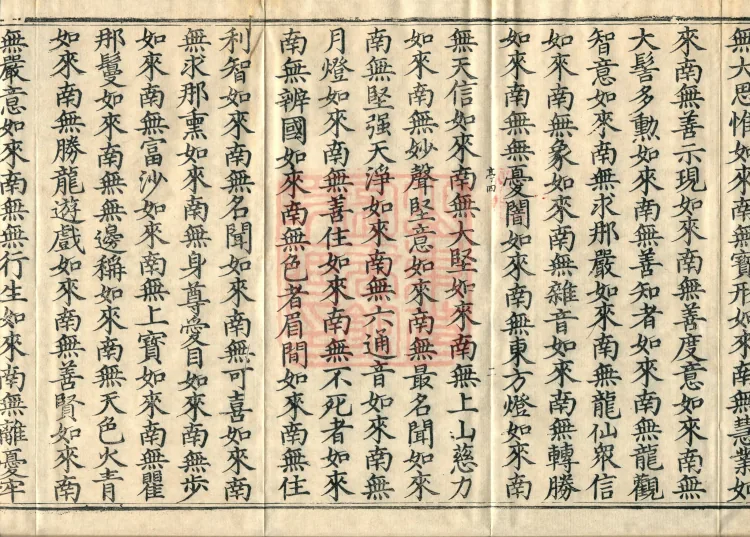 無大思惟如來南無寶形如來南無慧業如
來南無善示現如來南無善度意如來南無
大髻多勳如來南無善知者如來南無龍觀
智意如來南無求那嚴如來南無龍仙衆信
如來南無象如來南無雜音如來南無轉勝
如來南無無憂闇如來南無東方燈如來南
無天信如來南無大堅如來南無上山慈力
如來南無妙聲堅意如來南無最名聞如來
南無堅强天淨如來南無六通音如來南無
月燈如來南無善住如來南無不死者如來
南無辨國如來南無色者眉間如來南無住
利智如來南無名聞如來南無可喜如來南
無求那熏如來南無身尊愛目如來南無步
如來南無富沙如來南無上寶如來南無瞿
那鬘如來南無無邊稱如來南無天色火青
如來南無勝龍遊戲如來南無善賢如來南
無嚴意如來南無無行生如來南無離憂牢